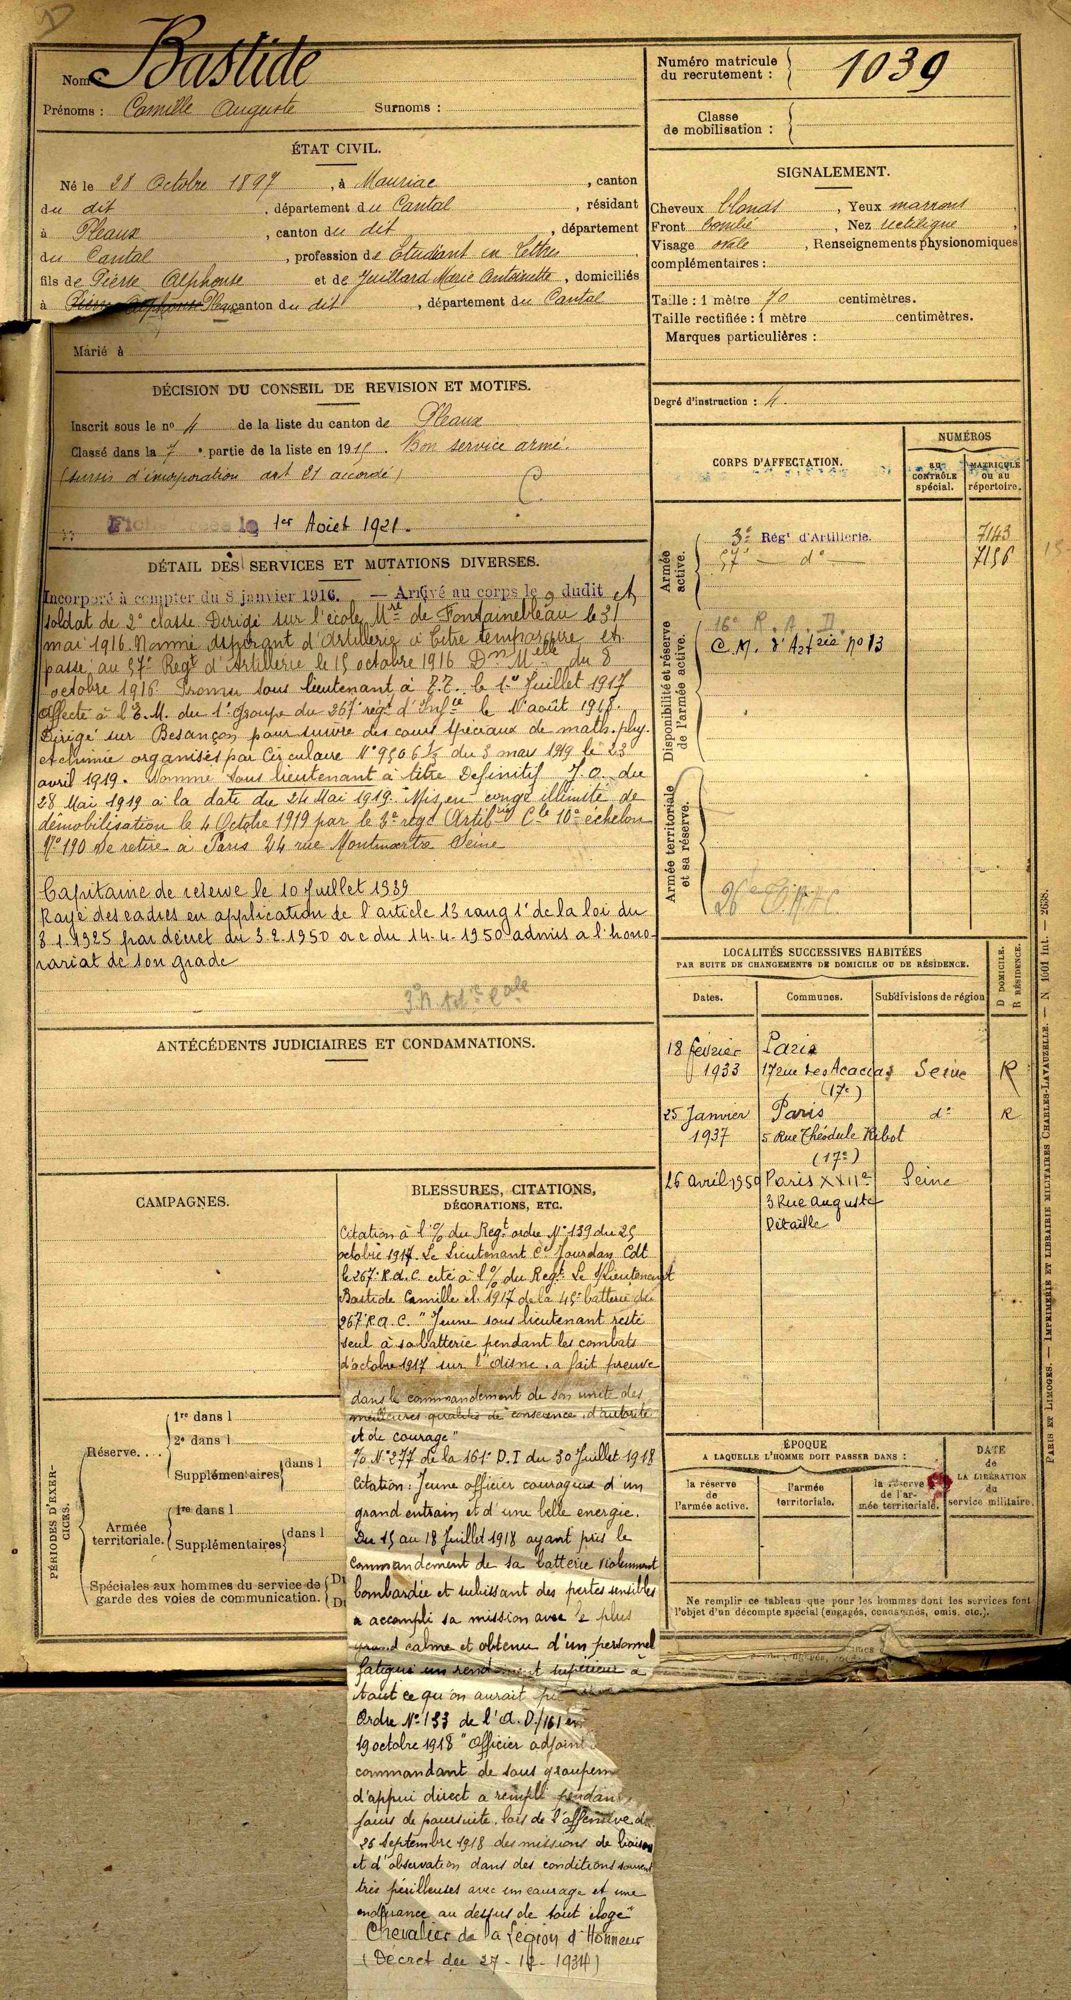 Nom : Bastide
Prénoms : Camille Auguste Surnoms :
ÉTAT CIVIL.
Né le 28 Octobre 1897, à Mauriac, canton
du dit, département du Cantal, résidant
à Pleaux, canton du dit, département
du Cantal, profession de Etudiant en Lettres
fils de Pierre Alphonse et de Juillard Marie Antoinette, domiciliés
à Pierre Alphonse Pleaux canton du dit, département du Cantal
Marié à
DÉCISION DU CONSEIL DE REVISION ET MOTIFS.
Inscrit sous le nº 4 de la liste du canton de Pleaux
Classé dans la 7e partie de la liste en 1915. Bon service armé.
(sursis d'incorporation art 21 accordé)
C.
le 1er Aoiet 1921.
DÉTAIL DES SERVICES ET MUTATIONS DIVERSES.
Incorporé à compter du 8 janvier 1916. — Arrivé au corps le 9 dudit et
soldat de 2e classe Dirigé sur l'école Mre de Fontainebleau le 31
mai 1916 Nommé aspirant d'Artillerie à titre temporaire et
passé au 57e Regt d'Artillerie le 15 octobre 1916 Dn Melle du 8
octobre 1916 Promu sous lieutenant à T.T. le 1er Juillet 1917
affecté à l'E.M. du 1e Groupe du 267e régt d' le 1er août 1918.
Dirigé sur Besançon pour suivre des cours spéciaux de math. phy.
et chimie organisés par Circulaire Nº 9506 du 3 mars 1919 le 23
avril 1919. Nommé sous lieutenant à titre Definitif J.O. du
28 Mai 1919 à la date du 24 Mai 1919. Mis en congé illimité de
démobilisation le 4 Octobre 1919 par le 3e régt Artillrie Cle 10e echelon
Nº 190 se retire à Paris 24 rue Montmartre Seine
Capitaine de réserve le 10 Juillet 1939
Rayé des cadres en application de l'article 13 rang 1e de la loi du
8.1.1925 par décret du 3.2.1950 a c du 14.4.1950 admis a l'hono-
rariat de son grade
3e R. Artie Cale
ANTÉCÉDENTS JUDICIAIRES ET CONDAMNATIONS.
CAMPAGNES.
BLESSURES, CITATIONS,
DÉCORATIONS, ETC.
Citation à l'% du Regt ordre Nº 139 du 25
octobre 1917. Le Lieutenant Cel Jourdan Cdt
le 267e R.A.C. cite à l'% du Regt. Le s/Lieutenant
Bastide Camille cl. 1917 de la 45e batterie du
267e R.A.C. "Jeune sous lieutenant resté
seul à sa batterie pendant les combats
d'octobre 1917 sur l'Aisne. a fait preuve
dans le commandement de son unité des
meilleures qualités de conscience, d'autorité
et de courage"
% Nº 277 de la 161e D.I du 30 Juillet 1918
Citation: Jeune officier courageux d'un
grand entrain et d'une belle energie.
Du 15 au 18 Juillet 1918 ayant pris le
commandement de sa batterie violemment
bombardée et subissant des pertes sensibles
a accompli sa mission avec le plus
grand calme et obtenu d'un personnel
fatigué un rendement supérieur à
tout ce qu'on aurait pu
Ordre Nº 133 de l'A.D/161 en
19 octobre 1918 "Officier adjoint
commandant de sous groupem
d'appui direct a rempli pendan
jours de poursuite, lors de l'offensive du
26 Septembre 1918 des missions de liaison
et d'observation dans des conditions souvent
très périlleuses avec un courage et une
endurance au dessus de tout éloge"
Chevalier de la Légion d'Honneur
(Décret du 27-12-1934)
PÉRIODES D'EXERCICES.
Réserve...
1re dans l
2e dans l
Supplémentaires dans l
Armée territoriale.
1re dans l
Supplémentaires dans l
Spéciales aux hommes du service de
garde des voies de communication.
Numéro matricule
du recrutement : 1039
Classe
de mobilisation :
SIGNALEMENT.
Cheveux blonds, Yeux marrons
Front bombé, Nez rectiligne,
Visage ovale, Renseignements physionomiques
complémentaires :
Taille : 1 mètre 70 centimètres.
Taille rectifiée : 1 mètre centimètres.
Marques particulières :
Degré d'instruction : 4.
CORPS D'AFFECTATION.
NUMÉROS
au CONTRÔLE spécial.
MATRICULE ou au répertoire.
Armée active.
3e Régt d'Artillerie. 7143
57e — do — 7156
Disponibilité et réserve de l'armée active.
16e R. A. D.
C.M. d'Artrie no 13
Armée territoriale et sa réserve.
LOCALITÉS SUCCESSIVES HABITÉES
PAR SUITE DE CHANGEMENTS DE DOMICILE OU DE RÉSIDENCE.
Dates. Communes. Subdivisions de région
D DOMICILE. R RÉSIDENCE.
18 février Paris
1933 17 rue des Acacias Seine R
(17e)
25 Janvier Paris do R
1937 5 Rue Théodule Ribot
(17e)
26 avril 1950 Paris XVIIe Seine
3 Rue Auguste
Détaille
ÉPOQUE
A LAQUELLE L'HOMME DOIT PASSER DANS :
la réserve de l'armée active.
l'armée territoriale.
la réserve de l'armée territoriale.
DATE
de
LA LIBÉRATION
du
service militaire.
Ne remplir ce tableau que pour les hommes dont les services font
l'objet d'un décompte spécial (engagés, condamnés, omis, etc.).
PARIS ET LIMOGES. — IMPRIMERIE ET LIBRAIRIE MILITAIRES CHARLES-LAVAUZELLE. — N 1001 int. — 2638.